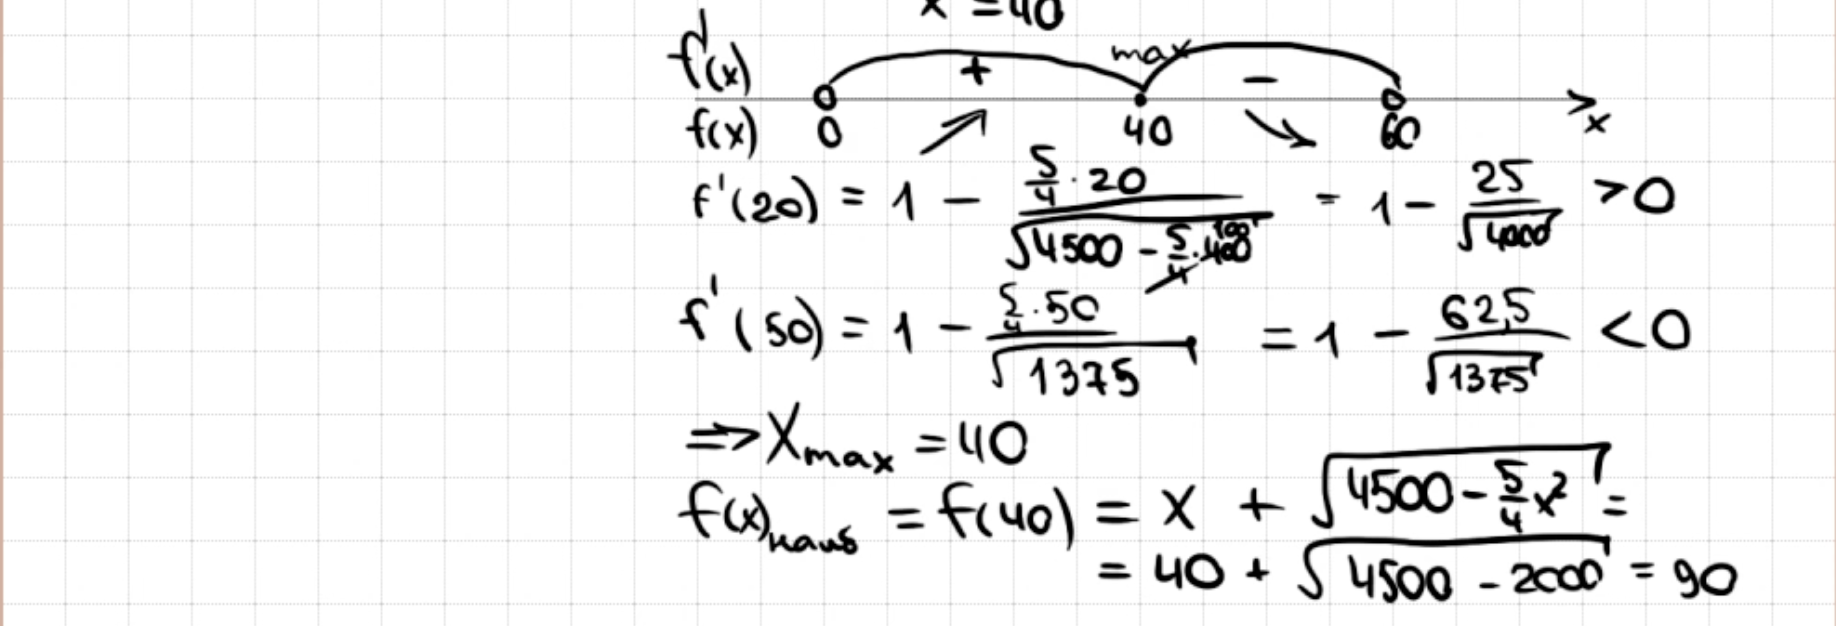 x = 40
f'(x) + max -
f(x) 0 40 60 x
f'(20) = 1 - (5/4 · 20)/√(4500 - 5/4 · 400 100) = 1 - 25/√4000 > 0
f'(50) = 1 - (5/4 · 50)/√1375 = 1 - 62,5/√1375 < 0
⇒ Xmax = 40
f(x)наиб = f(40) = x + √(4500 - 5/4 x²) =
= 40 + √(4500 - 2000) = 90